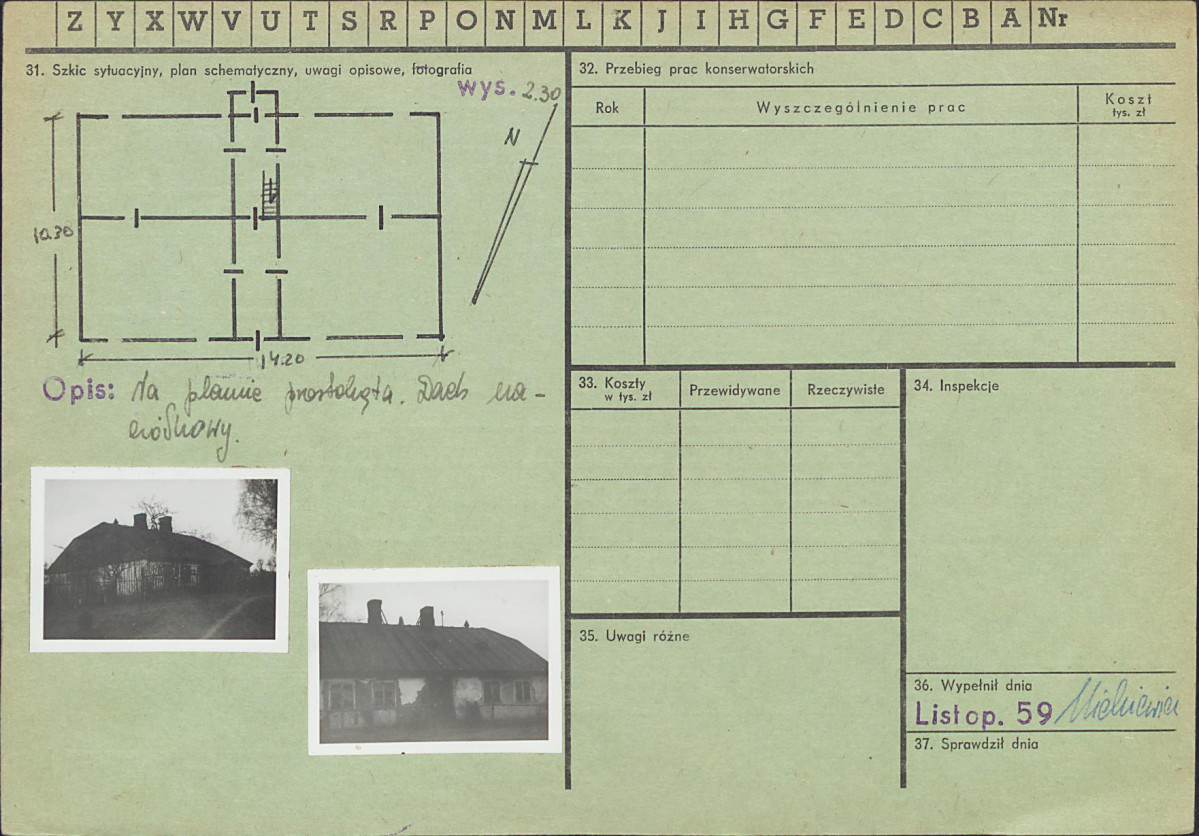 Z Y X W V U T S R P O N M L K J I H G F E D C B A Nr
31. Szkic sytuacyjny, plan schematyczny, uwagi opisowe, fotografia
wys. 2.30
N
10.30
14.20
Opis: Na planie prostokąta. Dach na-
czółkowy.
32. Przebieg prac konserwatorskich
Rok
Wyszczególnienie prac
Koszt
tys. zł
33. Koszty
w tys. zł
Przewidywane
Rzeczywiste
34. Inspekcje
35. Uwagi różne
36. Wypełnił dnia
Listop. 59
37. Sprawdził dnia